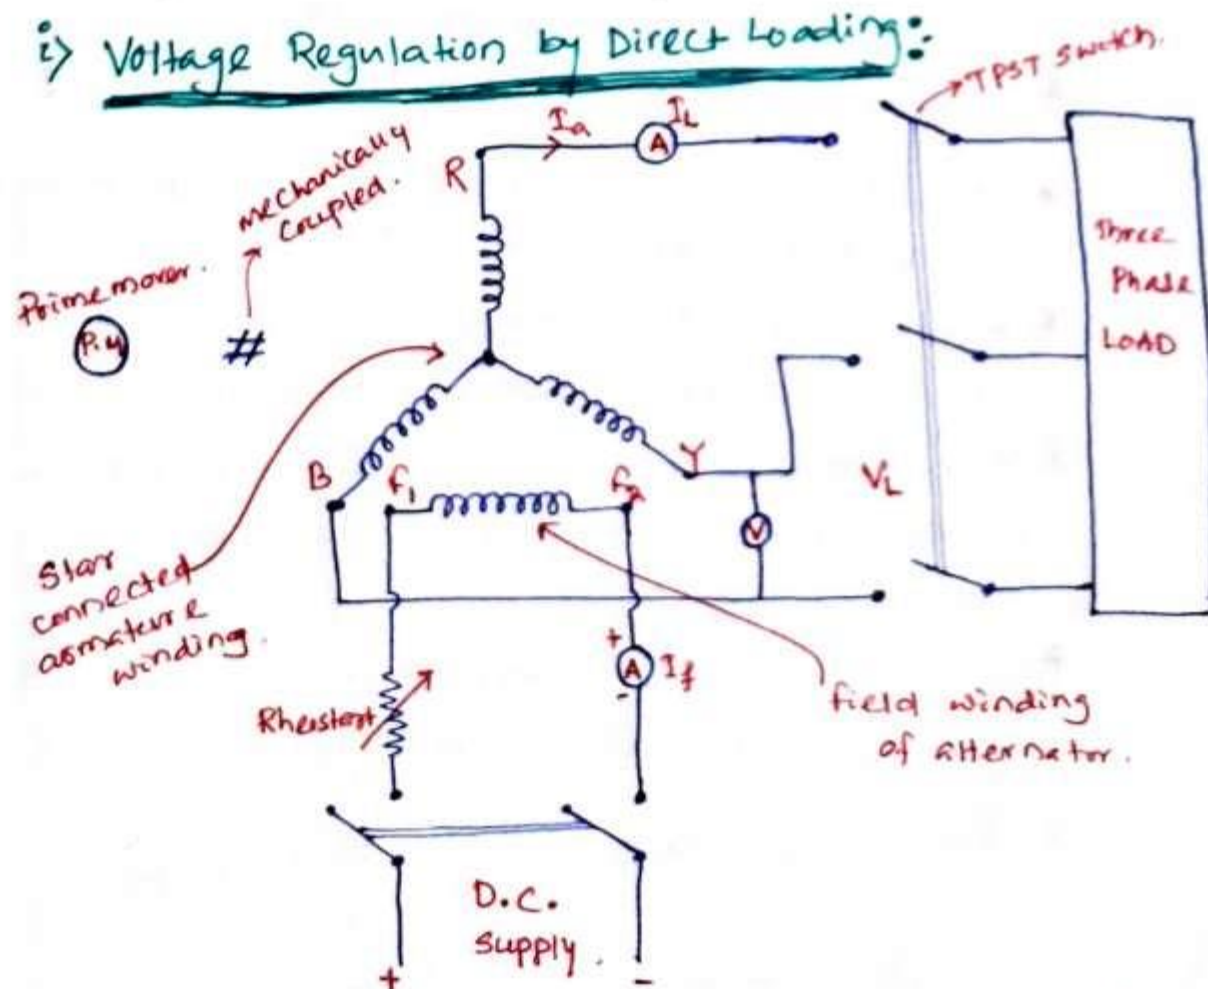 i) Voltage Regulation by Direct Loading:
TPST switch.
mechanically
coupled.
Ia
IL
A
R
Prime mover.
P.M
#
Three
Phase
LOAD
B
F1
F2
Y
VL
V
Star
connected
armature
winding.
+
A
If
-
Rheostart
field winding
of alternator.
D.C.
supply.
+
-